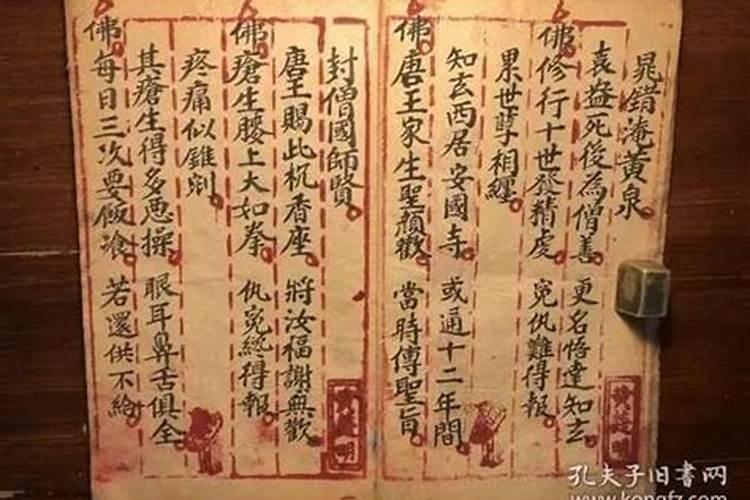 晁錯淹黃泉
袁盎死後為僧善 更名悟達知玄
佛修行十世發精虔 冤仇難得報
累世孽相纏
知玄西居安國寺 或通十二年間
佛唐王家生聖顏歡 當時傳聖旨
封僧國師賢
唐王賜此杌香座 將汝福謝無歡
佛瘡生腰上大如拳 仇冤終得報
疼痛似錐剜
其瘡生得多恶操 眼耳鼻舌俱全
佛每日三次要飯飡 若還供不給
孔夫子旧书网